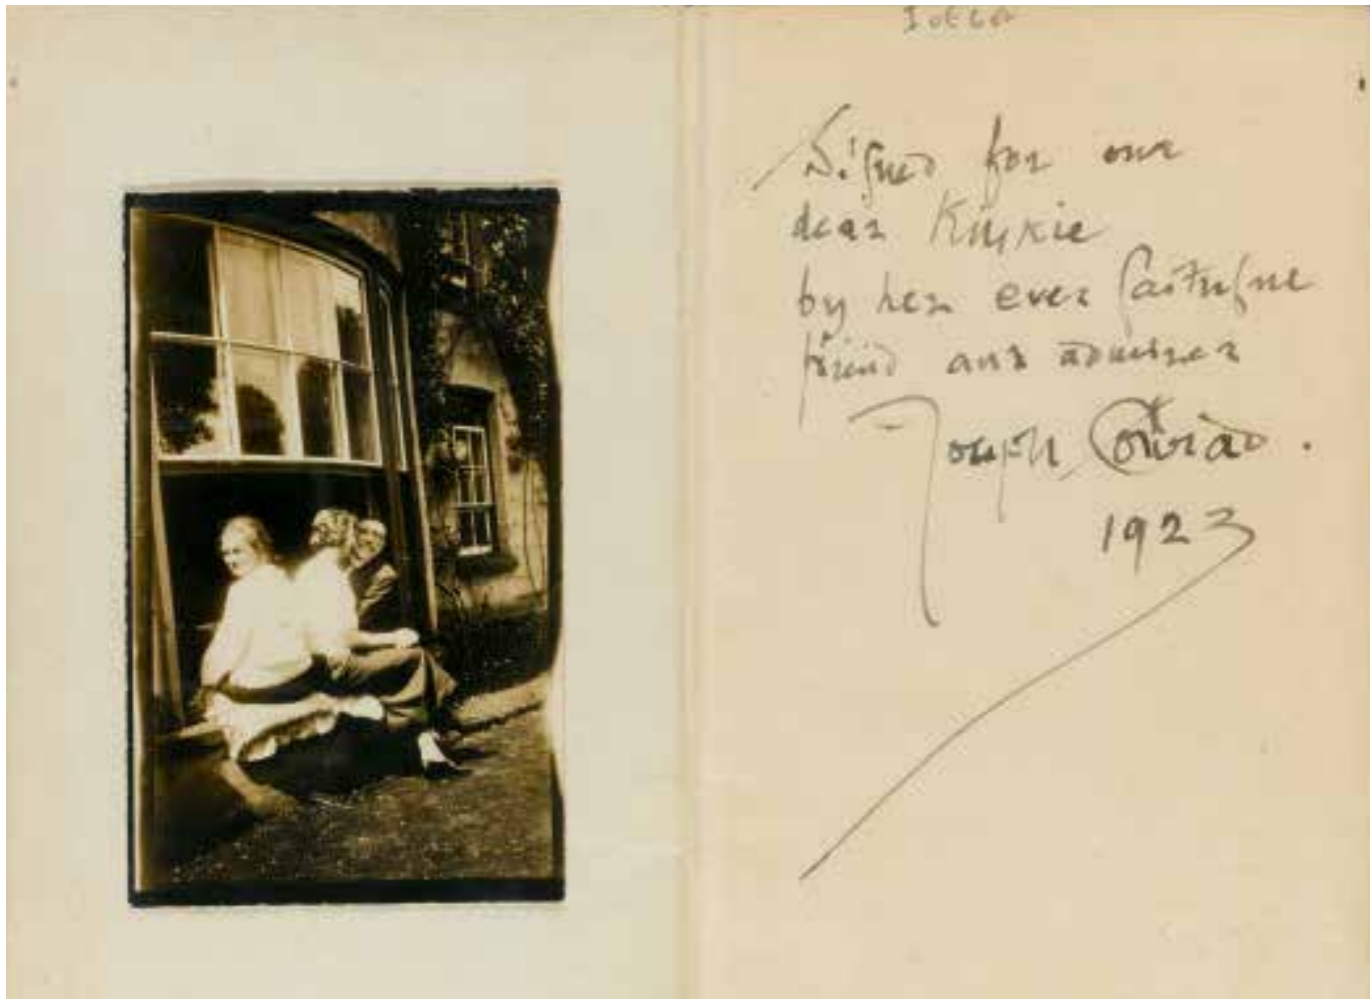 Signed for our
dear Kinkie
by her ever faithful
friend and admirer
Joseph Conrad.
1923